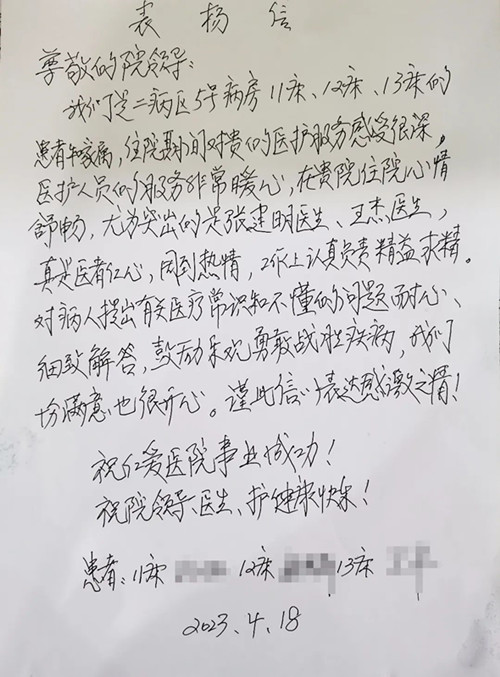 表扬信
尊敬的院领导：
我们是二病区5号病房11床、12床、13床的
患者和家属，住院期间对贵的医护服务感受很深。
医护人员们服务非常暖心，在贵院住院心情
舒畅，尤为突出的是张建明医生、王杰医生，
真是医者仁心，周到热情，工作上认真负责精益求精。
对病人提出有关医疗常识和不懂的问题耐心、
细致解答，鼓励乐观勇敢战胜疾病，我们
均满意也很开心。谨此信以表达感激之情！
祝仁爱医院事业成功！
祝院领导、医生、护健康快乐！
患者：11床 12床 13床
2023.4.18